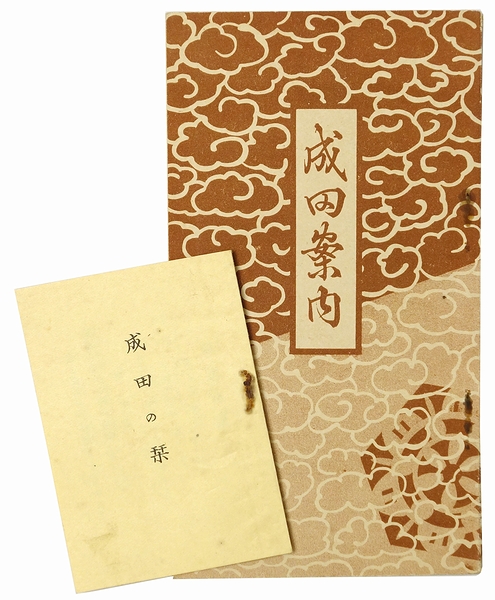 成田案内
成田の栞